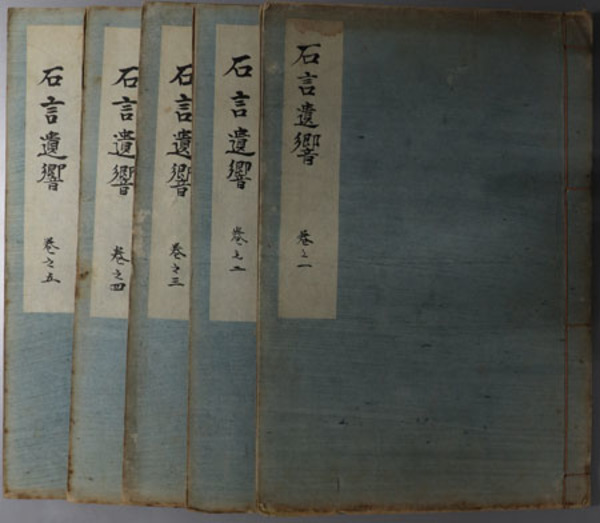 石言遺響
巻之一
石言遺響
巻之二
石言遺響
巻之三
石言遺響
巻之四
石言遺響
巻之五